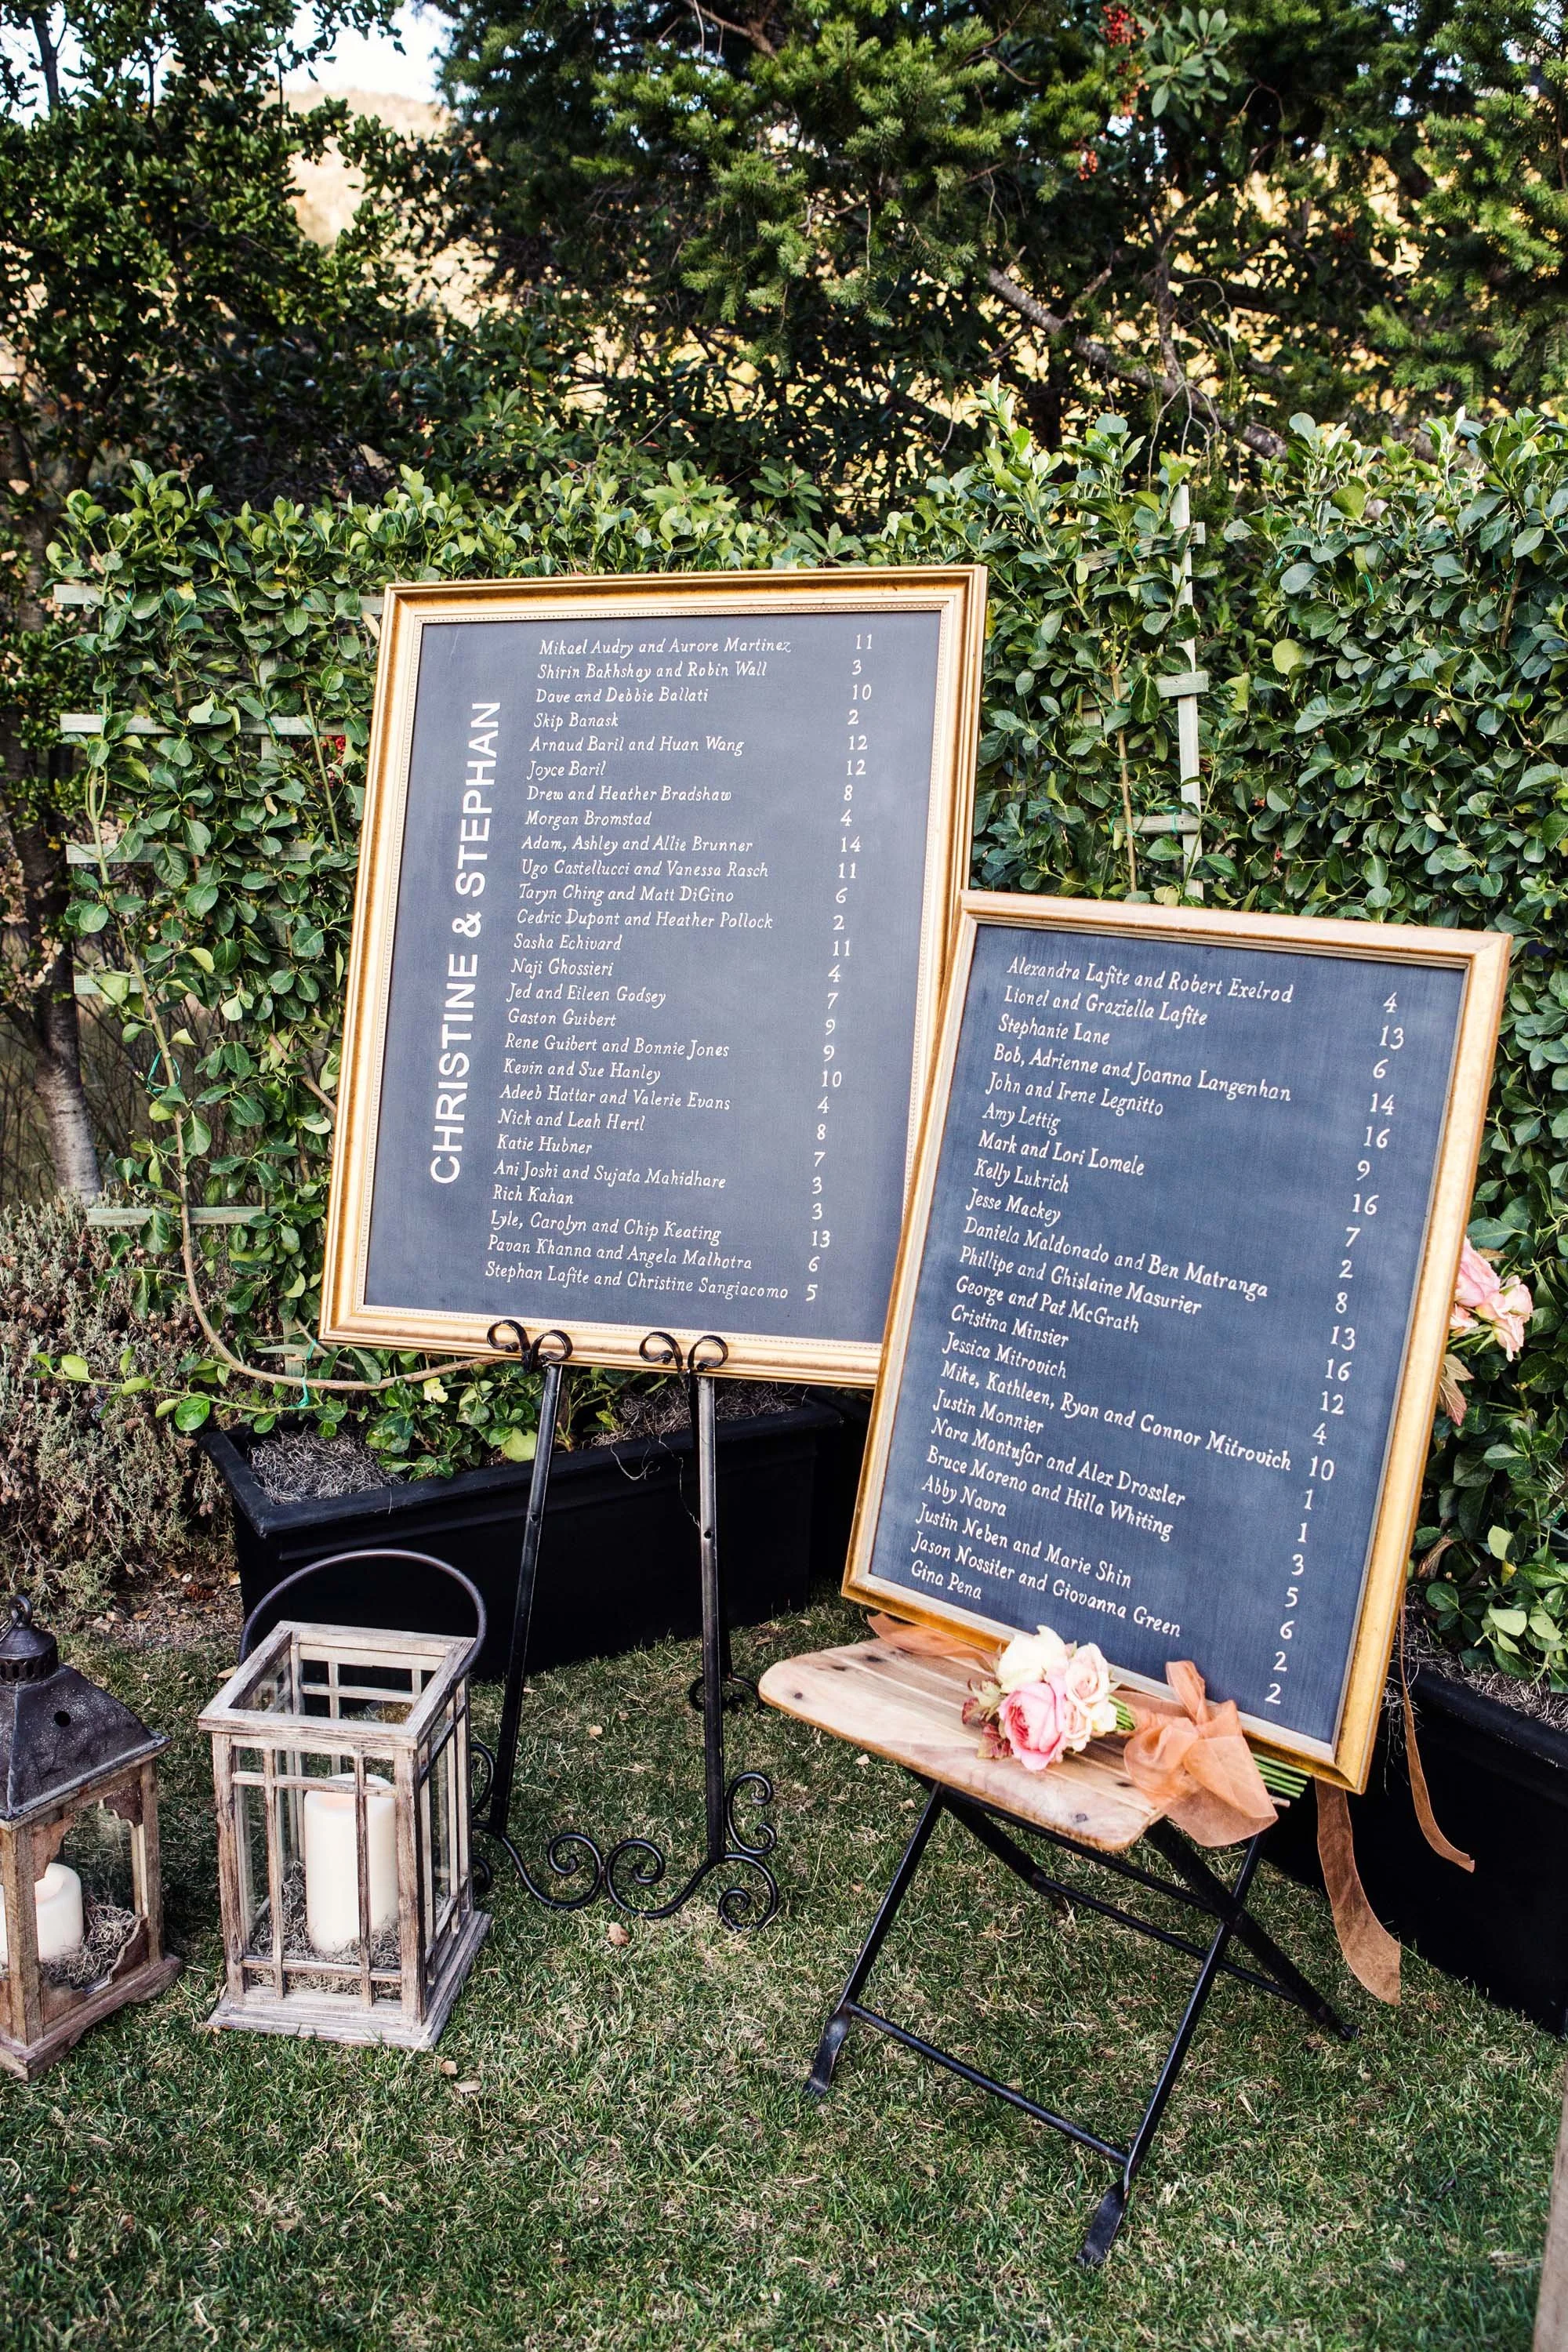 CHRISTINE & STEPHAN
Mikael Audry and Aurore Martinez 11
Shirin Bakhshay and Robin Wall 3
Dave and Debbie Ballati 10
Skip Banask 2
Arnaud Baril and Huan Wang 12
Joyce Baril 12
Drew and Heather Bradshaw 8
Morgan Bromstad 4
Adam, Ashley and Allie Brunner 14
Ugo Castellucci and Vanessa Rasch 11
Taryn Ching and Matt DiGino 6
Cedric Dupont and Heather Pollock 2
Sasha Echivard 11
Naji Ghossieri 4
Jed and Eileen Godsey 7
Gaston Guibert 9
Rene Guibert and Bonnie Jones 9
Kevin and Sue Hanley 10
Adeeb Hattar and Valerie Evans 4
Nick and Leah Hertl 8
Katie Hubner 7
Ani Joshi and Sujata Mahidhare 3
Rich Kahan 3
Lyle, Carolyn and Chip Keating 13
Pavan Khanna and Angela Malhotra 6
Stephan Lafite and Christine Sangiacomo 5
Alexandra Lafite and Robert Exelrod 4
Lionel and Graziella Lafite 13
Stephanie Lane 6
Bob, Adrienne and Joanna Langenhan 14
John and Irene Legnitto 16
Amy Lettig 9
Mark and Lori Lomele 16
Kelly Lukrich 7
Jesse Mackey 2
Daniela Maldonado and Ben Matranga 8
Phillipe and Ghislaine Masurier 13
George and Pat McGrath 16
Cristina Minsier 12
Jessica Mitrovich 4
Mike, Kathleen, Ryan and Connor Mitrovich 10
Justin Monnier 1
Nara Montufar and Alex Drossler 1
Bruce Moreno and Hilla Whiting 3
Abby Navra 5
Justin Neben and Marie Shin 6
Jason Nossiter and Giovanna Green 2
Gina Pena 2